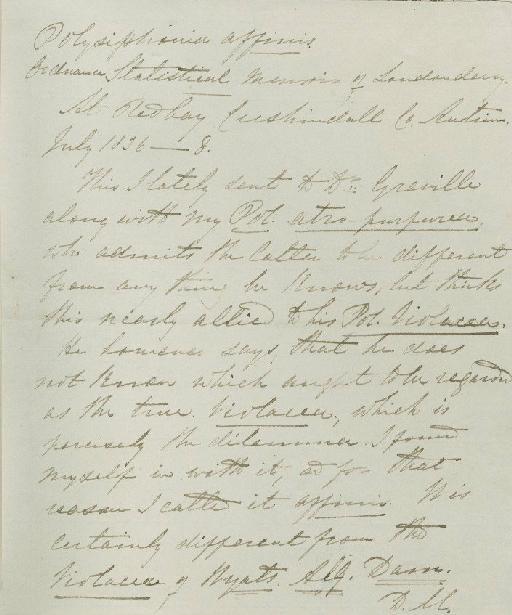 Polysiphonia affinis
Ordnance Statistical Memoir of Londonderry.
At Redbay Cushendall Co Antrim.
July 1836 — 8.
This I lately sent to Dr. Greville
along with my Pol. atro-purpurea,
who admits the latter to be different
from any thing he knows, but thinks
this nearly allied to his Pol. Violacea.
He however says, that he does
not know which ought to be regarded
as the true Violacea, which is
precisely the dilemma I found
myself in with it, and for that
reason I called it affinis. It is
certainly different from the
Violacea of Wyatt's Alg. Danm.
D. M.